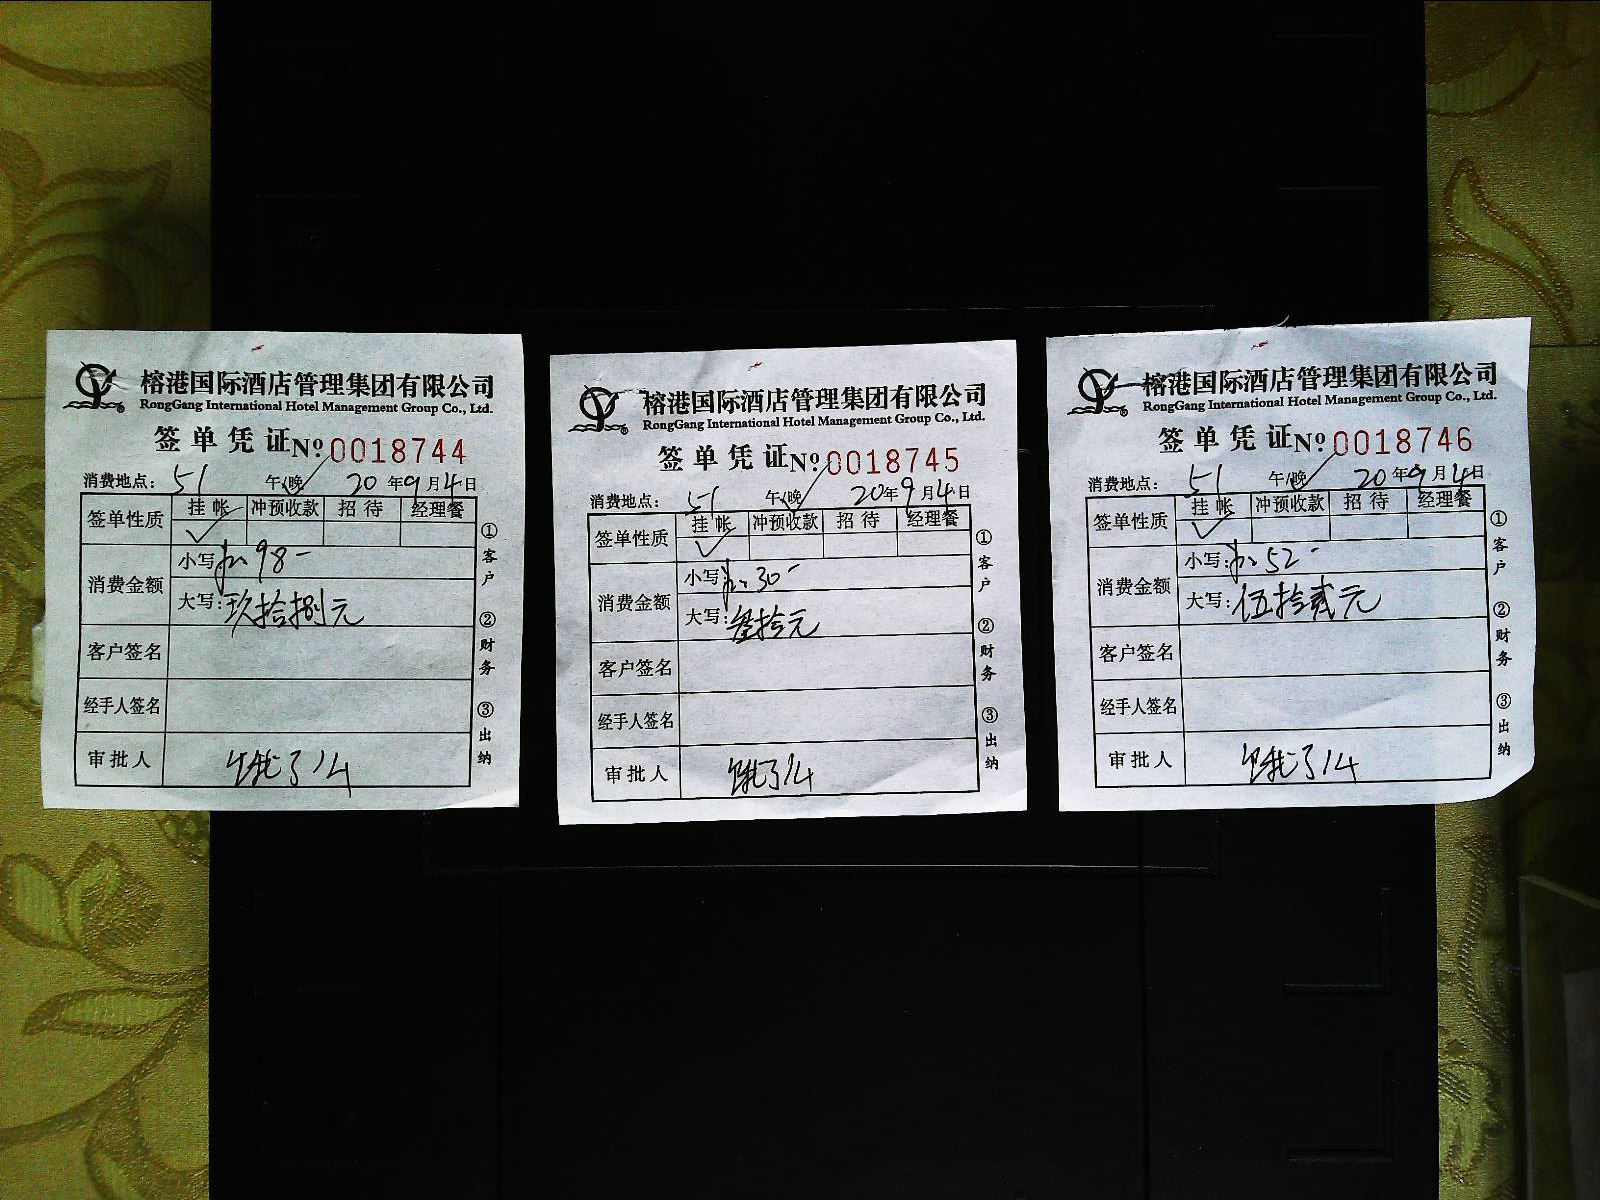 榕港国际酒店管理集团有限公司
RongGang International Hotel Management Group Co., Ltd.
签单凭证 №0018744
消费地点: 51 午/晚 20 年9月4日
签单性质 挂帐 冲预收款 招待 经理餐
消费金额
小写: 98-
大写:玖拾捌元
客户签名
经手人签名
审批人 饿了14
①客户 ②财务 ③出纳
榕港国际酒店管理集团有限公司
RongGang International Hotel Management Group Co., Ltd.
签单凭证 №0018745
消费地点: 51 午/晚 20年9月4日
签单性质 挂帐 冲预收款 招待 经理餐
消费金额
小写: 30-
大写:叁拾元
客户签名
经手人签名
审批人 饿了14
①客户 ②财务 ③出纳
榕港国际酒店管理集团有限公司
RongGang International Hotel Management Group Co., Ltd.
签单凭证 №0018746
消费地点: 51 午/晚 20年9月4日
签单性质 挂帐 冲预收款 招待 经理餐
消费金额
小写: 52-
大写:伍拾贰元
客户签名
经手人签名
审批人 饿了14
①客户 ②财务 ③出纳